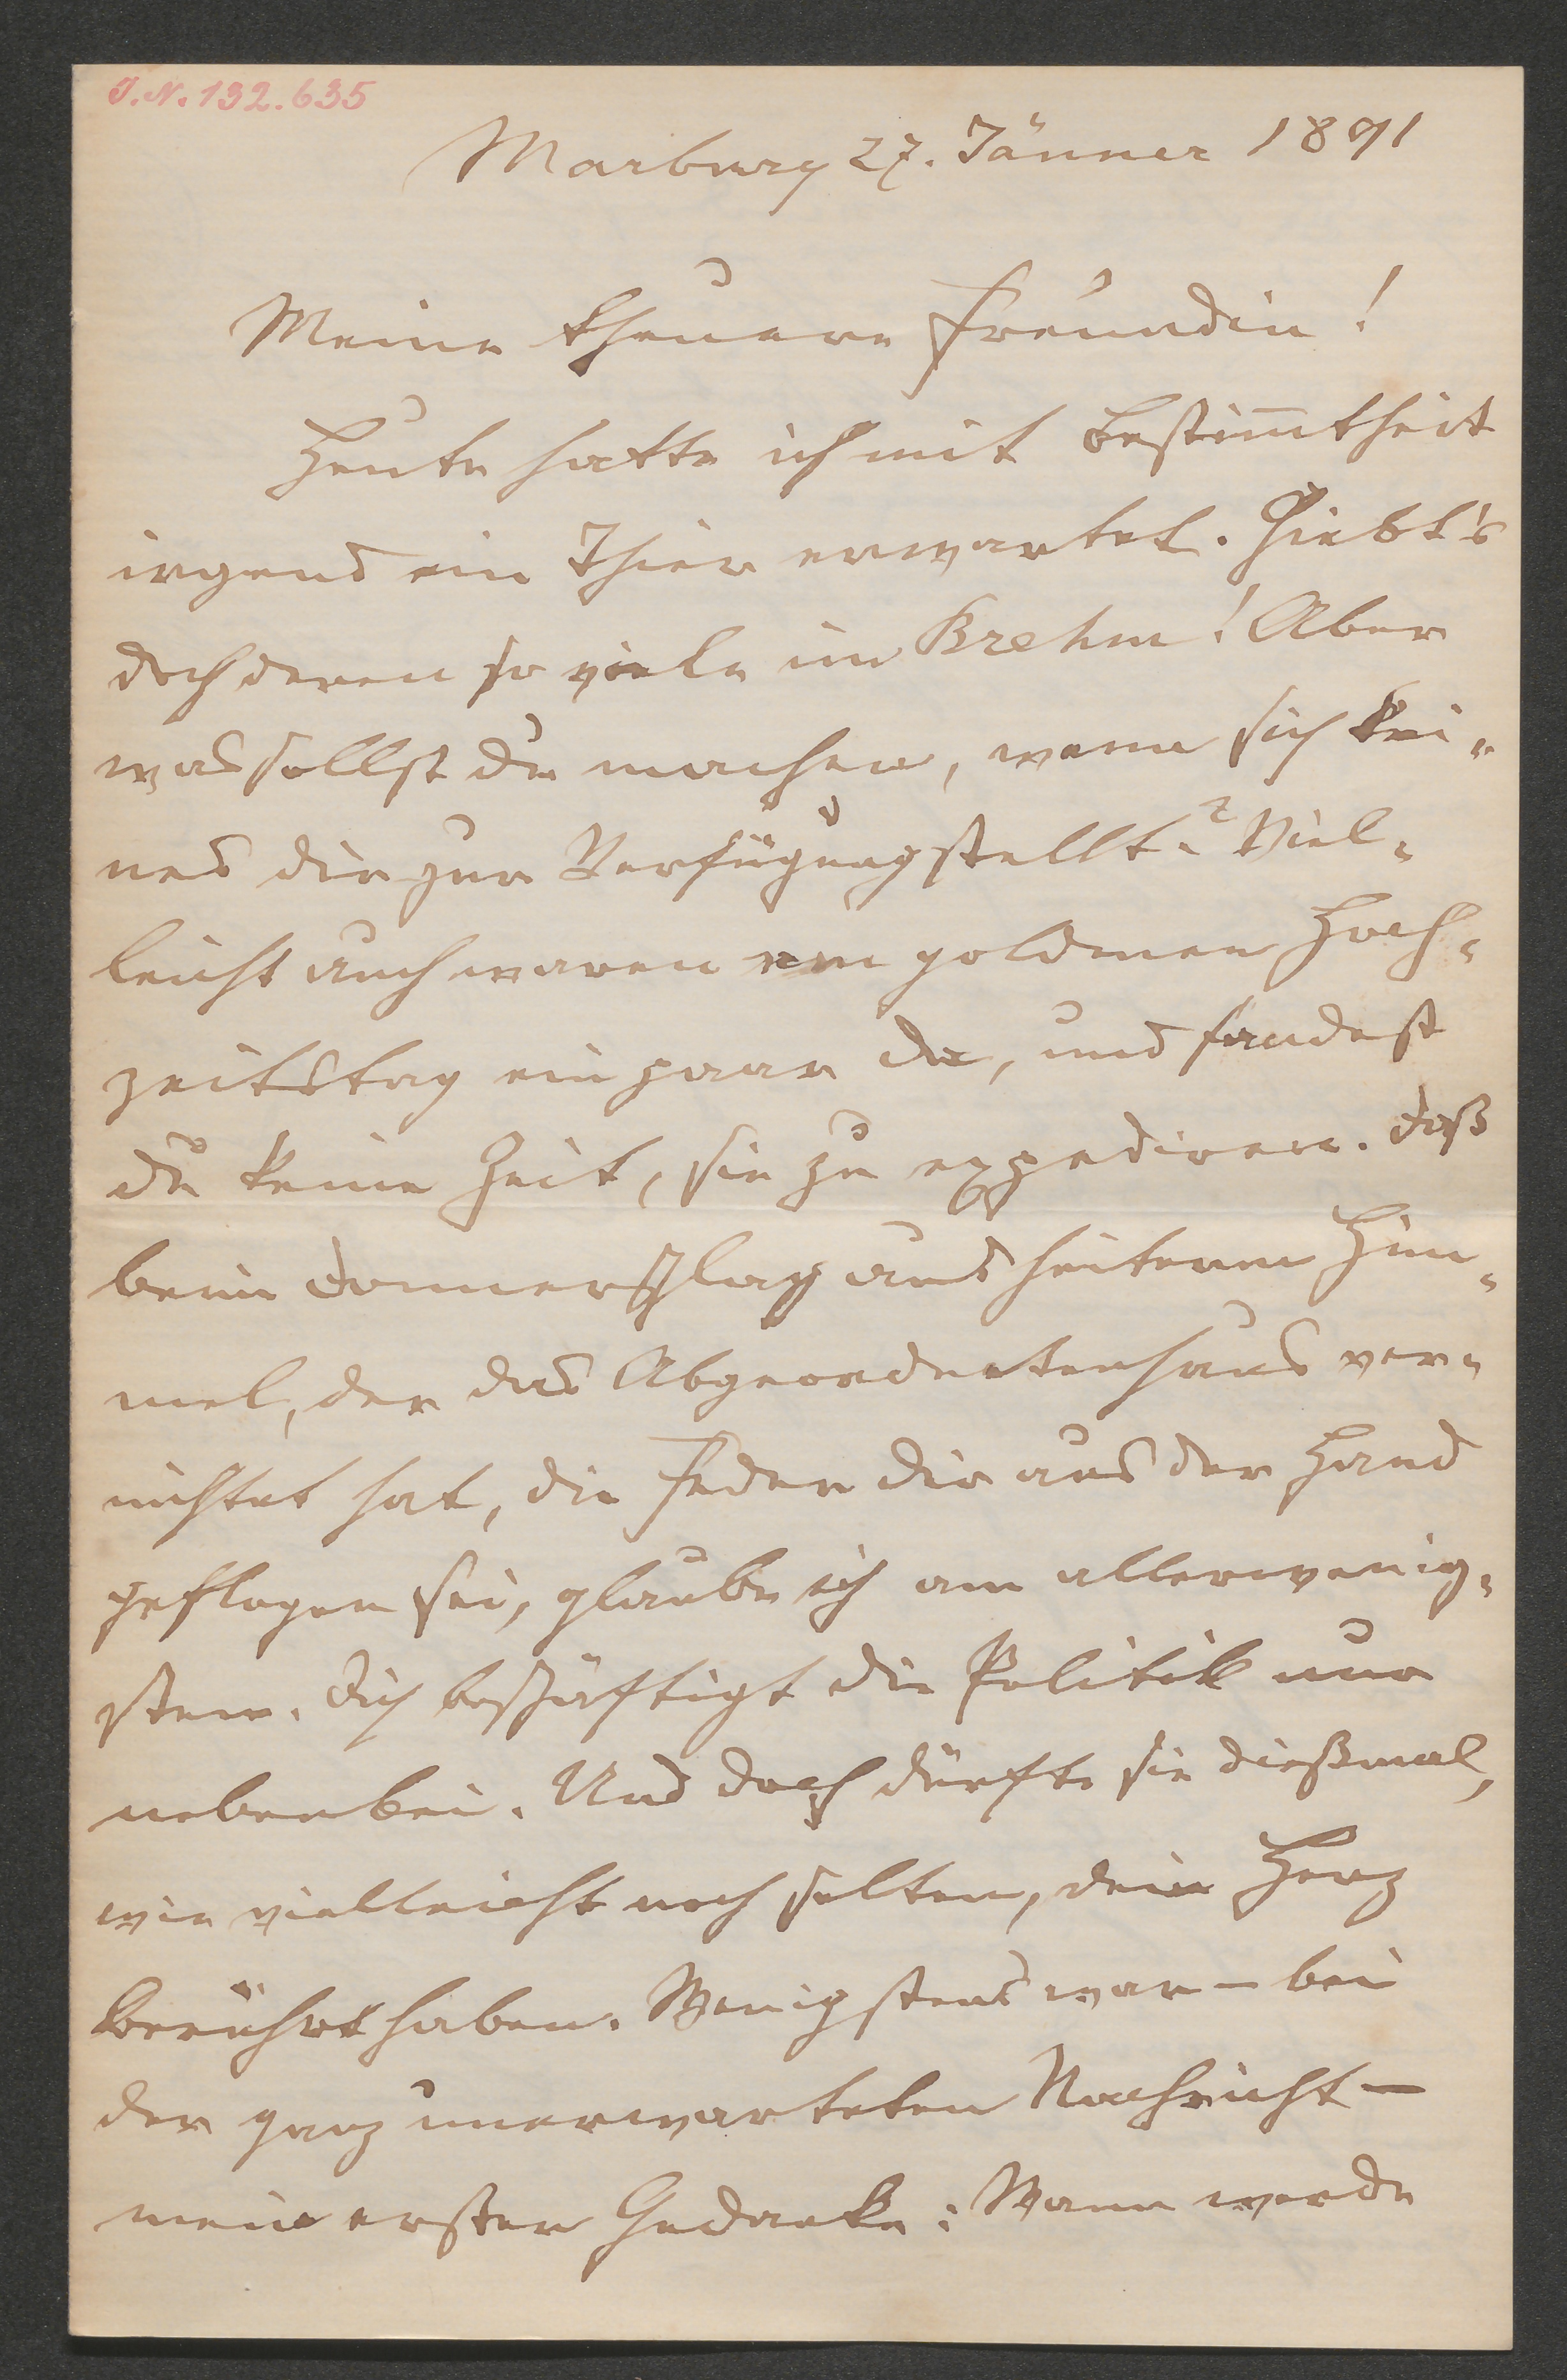 J.N. 132.635
Marburg 27. Jänner 1891
Meine theuere Freundin!
Heute hatte ich mit Bestim̅theit
irgend ein Thier erwartet. Giebt's
doch deren so viele im Brehm! Aber
was sollst du machen, wenn sich kei-
nes dir zur Verfügung stellt? Viel-
leicht auch waren am goldenen Hoch-
zeitstag ein paar da, und fandest
du keine Zeit, sie zu expediren. Daß
beim Donnerschlag aus heiterem Him-
mel, der das Abgeordnetenhaus ver-
nichtet hat, die Feder dir aus der Hand
geflogen sei, glaube ich am allerwenig-
sten. Dich beschäftigt die Politik nur
nebenbei. Und doch dürfte sie dießmal,
wie vielleicht noch selten, dein Herz
berührt haben. Wenigstens war – bei
der ganz unerwarteten Nachricht –
mein erster Gedanke: Wann werde